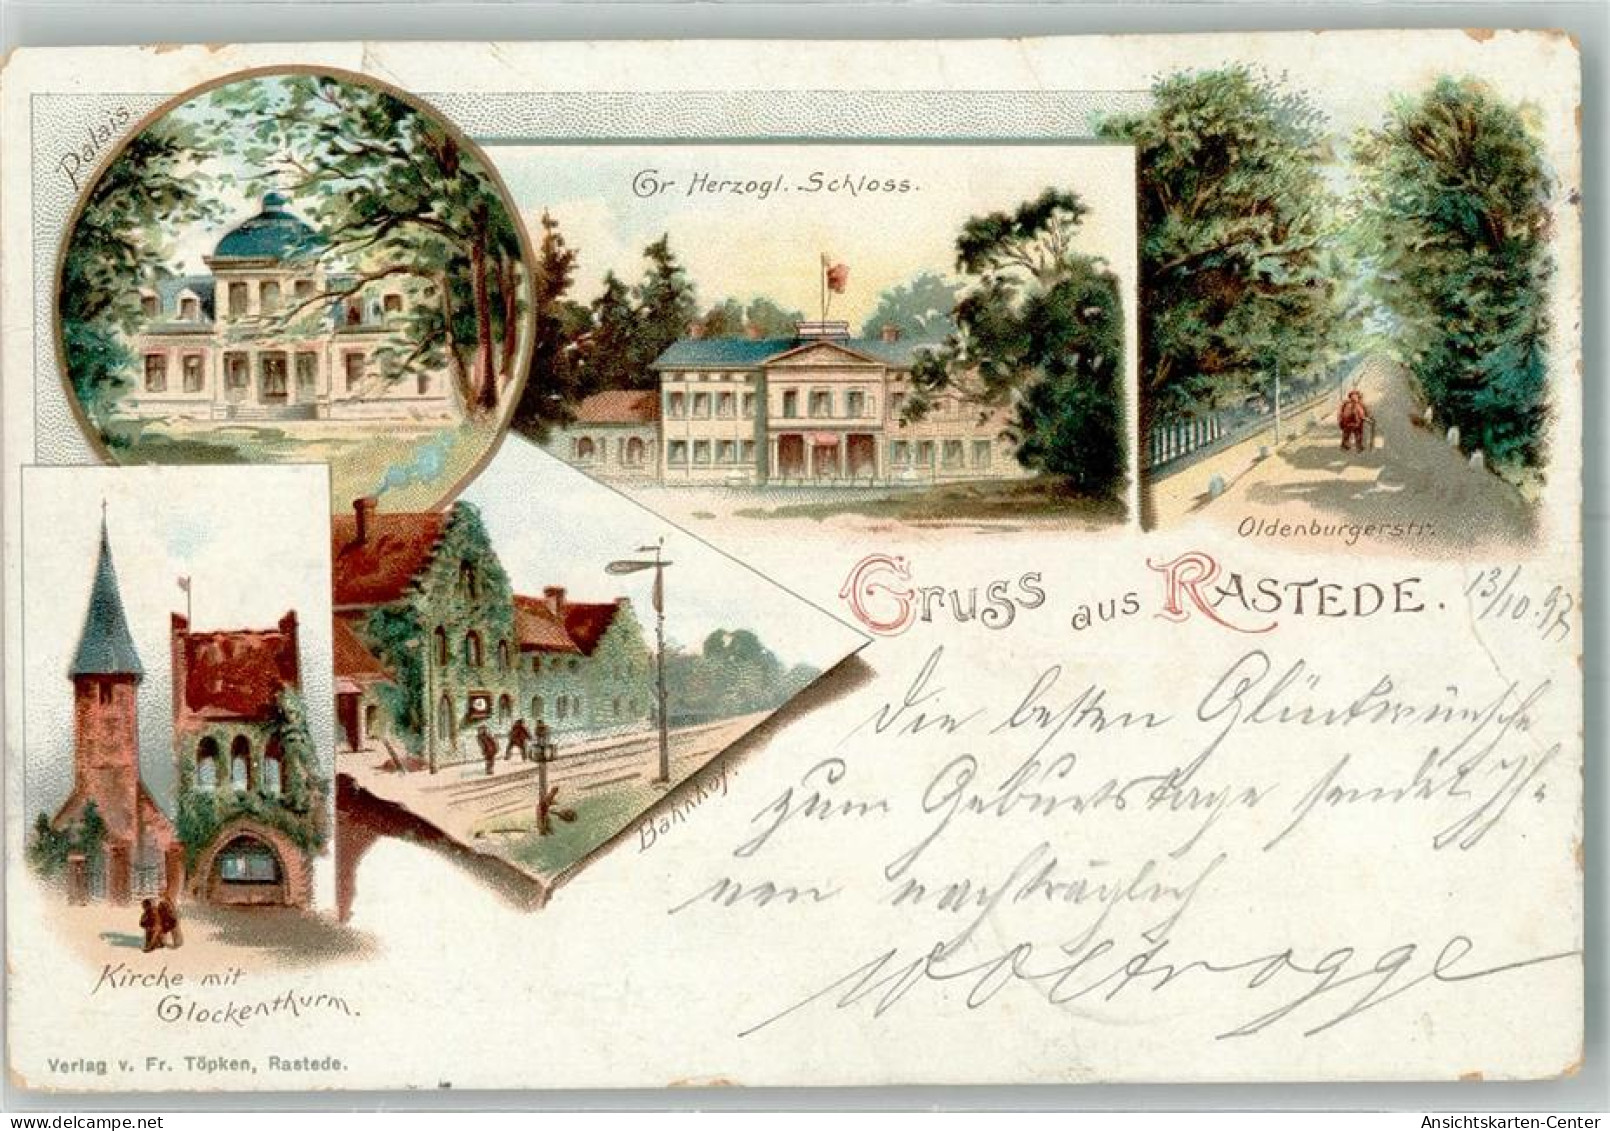 Palais
Gr Herzogl. Schloss.
Oldenburgerstr.
Gruss aus Rastede.
13/10.97
Die besten Glückwünsche
zum Geburtstage sendet Ih-
nen nachträglich
Woltrogge
Bahnhof.
Kirche mit
Glockenthurm.
Verlag v. Fr. Töpken, Rastede.
Ansichtskarten-Center